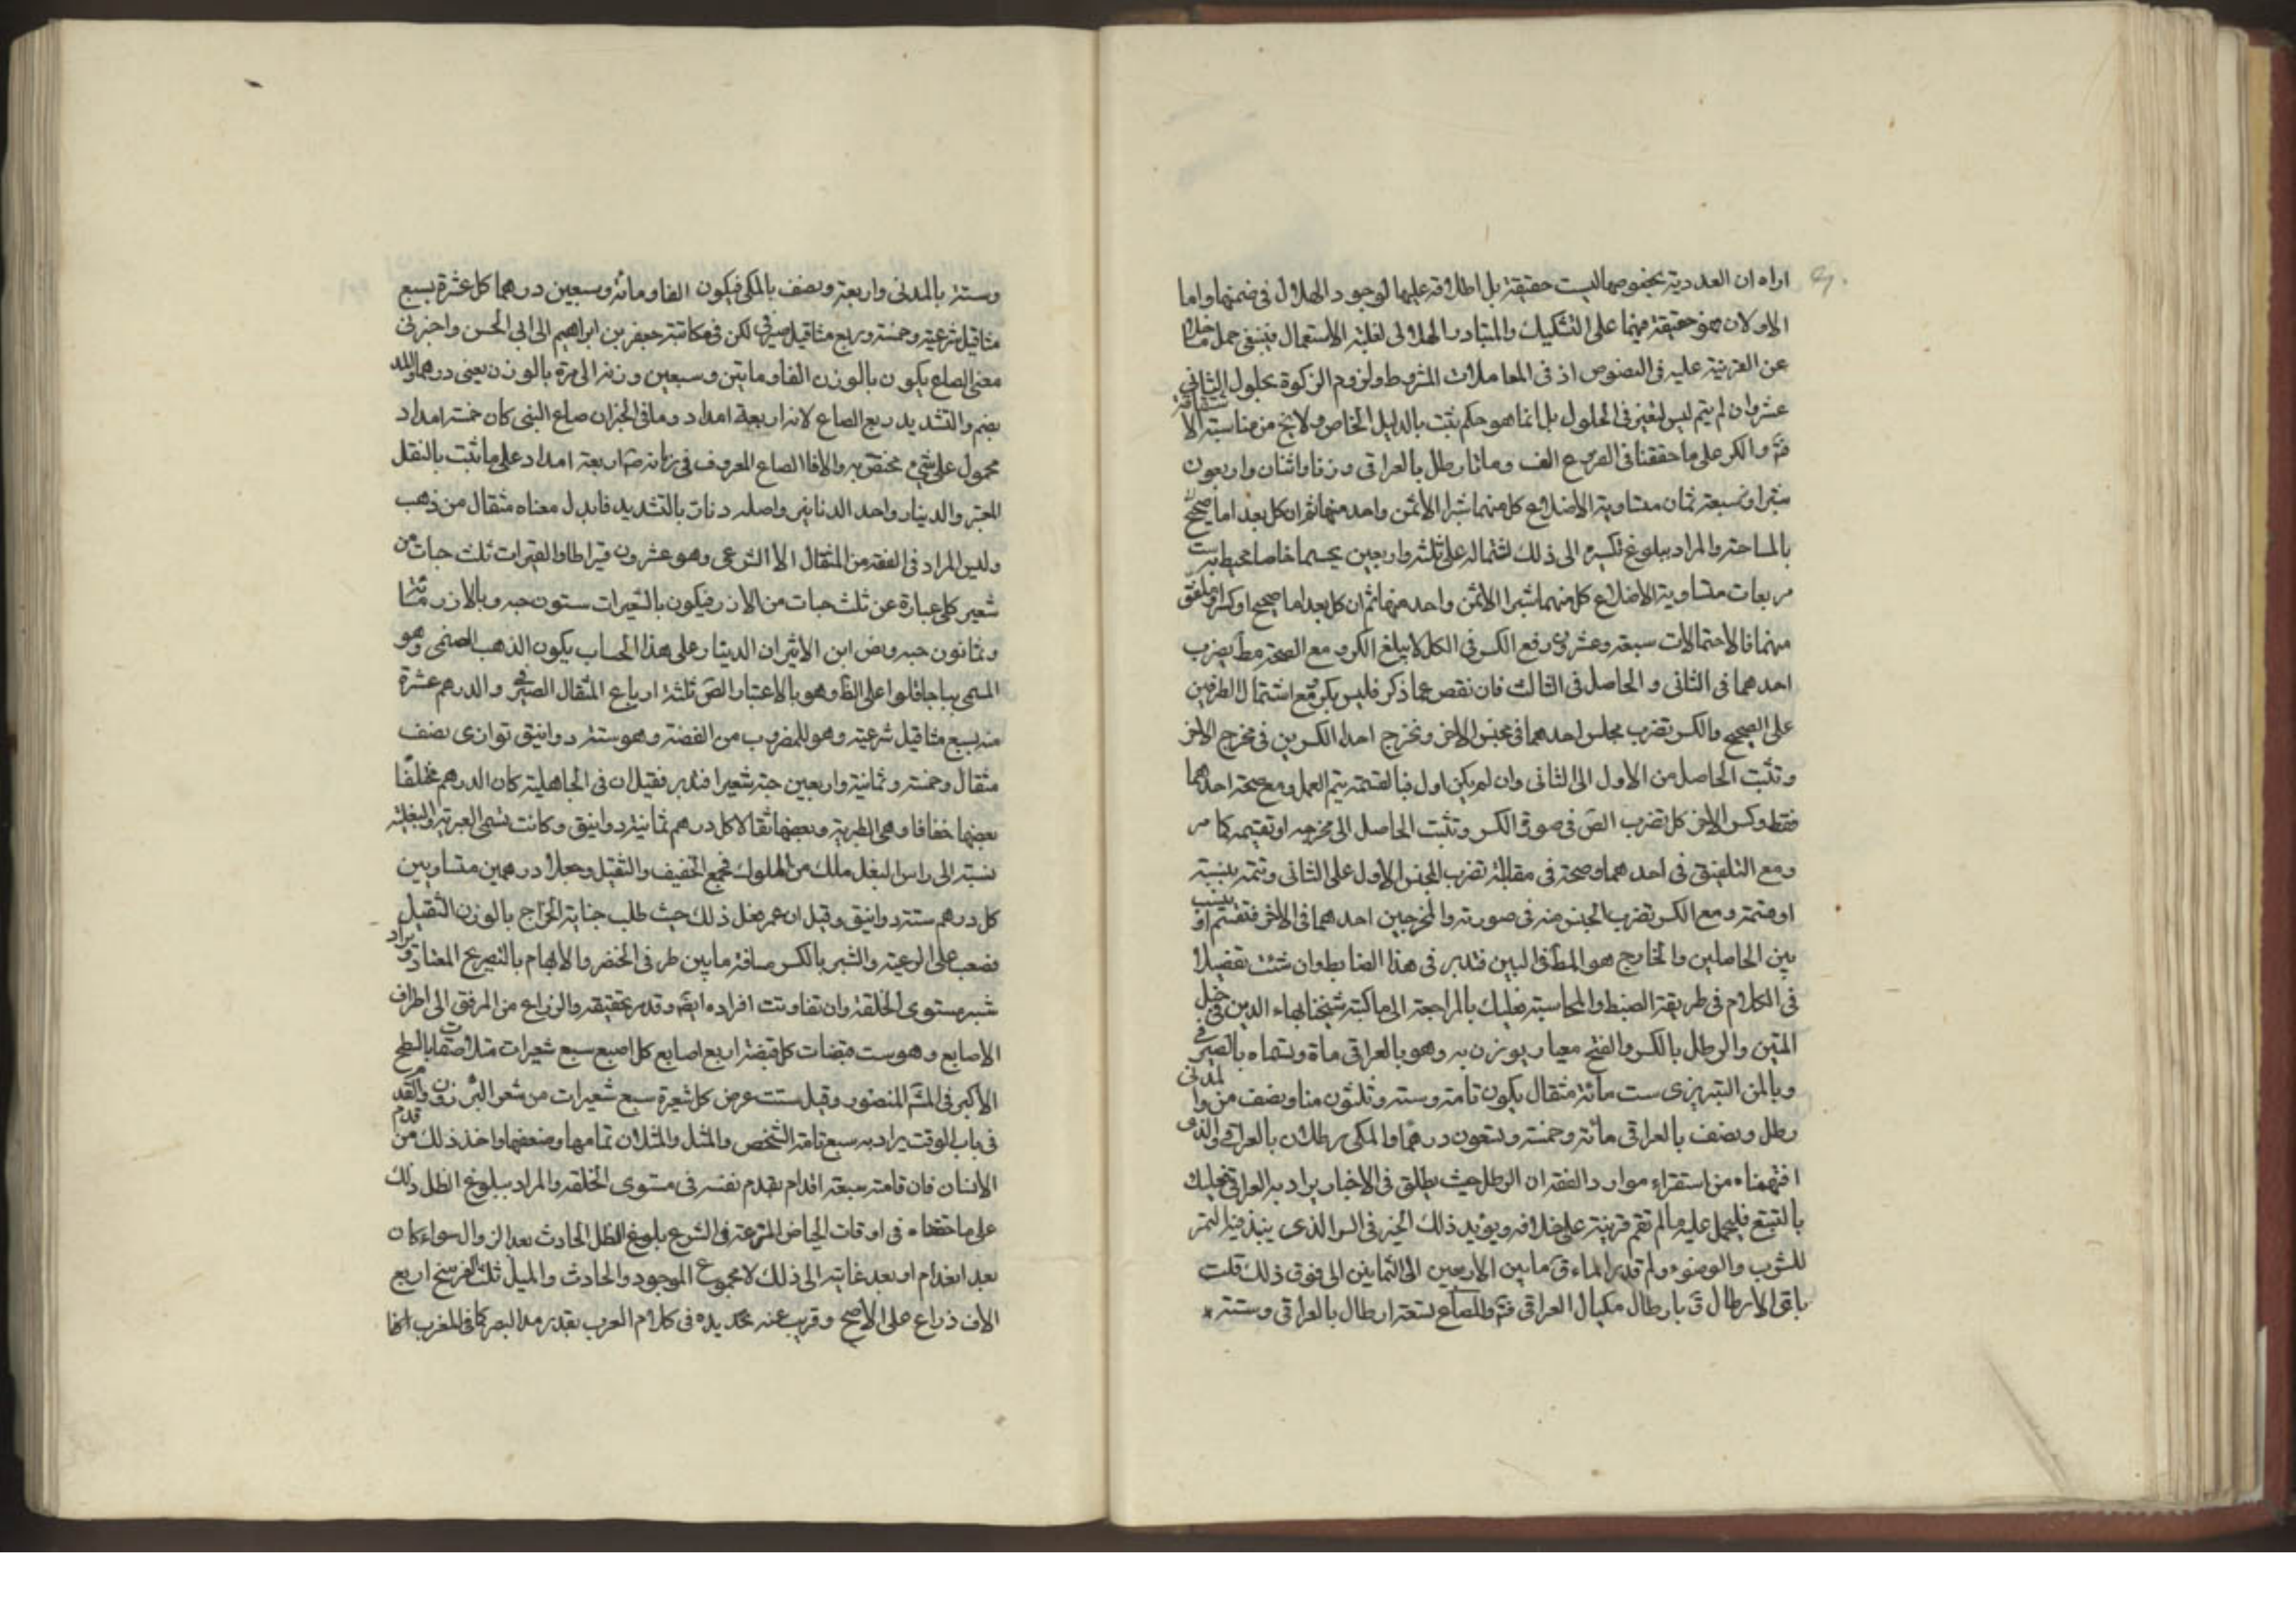 اراه ان العددية بخصوصها ليست حقيقة بل اطلاقه عليها لوجود الهلال في ضمنها واما
الاولان فهو حقيقة منهما على التشكيك والمتبادر الهلالى لغلبة الاستعمال فينبغى حمل
عن القرينة عليه فى النصوص اذ فى المعاملات المشروط ولزوم الزكوة بحلول الثانى
عشر وان لم يتم ليس لتغير فى الحلول بل انما هو حكم ثبت بالدليل الخاص ولا يخ من مناسبة
والكر على ما حققنا فى الفروع الف ومائتا رطل بالعراقى وزنا واثنان واربعون
شبرا وسبعة ثمان متساوية الاضلاع كل منهما شبرا الا ثمن واحد منهما ثم ان كل بعد اما صحيح
بالمساحة والمراد ببلوغ تكسيره الى ذلك اشتماله على ثلثة واربعين مجسما خاصا محيط به ست
مربعات متساوية الاضلاع كل منهما شبرا الا ثمن واحد منهما ثم ان كل بعد اما صحيح او كسر او ملفق
منهما فالاحتمالات سبعة وعشرون ورفع الكسر فى الكل لا يبلغ الكر ومع الصحة مط يضرب
احدهما فى الثانى والحاصل فى الثالث فان نقص عما ذكر فليس بكر ومع اشتمال الطرفين
على الصحيح والكسر تضرب مجنس احدهما فى مجنس الاخر ومخرج احد الكسرين فى مخرج الاخر
وتنسب الحاصل من الاول الى الثانى وان لم يكن اول فبالقسمة يتم العمل ومع صحة احدهما
فقط وكسر الاخر كل تضرب الص فى صورة الكسر وتنسب الحاصل الى مخرجه او تقسيمه كما مر
ومع التلفيق فى احدهما وصحة فى مقابلة تضرب المجنس الاول على الثانى وتتمه بنسبة
او قسمة ومع الكسر تضرب المجنس منه فى صورته والمخرجين احدهما فى الاخر فتقسم او ينسب
بين الحاصلين والخارج هو المط فى البين فتدبر فى هذا الضابط وان شئت تفصيلا
فى الكلام فى طريقة الضبط والمحاسبة فعليك بالمراجعة الى ما كتبه شيخنا بهاء الدين فى حبل
المتين والرطل بالكسر والفتح معيار يوزن به وهو بالعراقى
وبالمن التبريزى ست مائة مثقال يكون ثامنة وستة وثلثون منا ونصف من والمدنى
رطل ونصف بالعراقى مائة وخمسة وتسعون درهما والمكى رطلان بالعراقى والذى
افتهمناه من استقراء موارد الفقه ان الرطل حيث يطلق فى الاخبار يراد به العراقى فعليك
بالتتبع فليحمل عليه ما لم تقم قرينة على خلافه ويؤيد ذلك الخبر فى السر الذى ينبذ فيه التمر
للشرب والوضوء ولم قدر الماء ق ما بين الاربعين الى الثمانين الى فوق ذلك قلت
باى الارطال ق بارطال مكيال العراقى والصاع تسعة ارطال بالعراقى وستة
وستة بالمدنى واربعة ونصف بالمكى فيكون الفا ومائة وسبعين درهما كل عشرة بسبع
مثاقيل شرعية وخمسة وربع مثاقيل صيرفى لكن فى مكاتبة جعفر بن ابراهيم الى ابى الحسن واخبرنى
معنى الصاع يكون بالوزن الفا ومايتين وسبعين وزنة الى مرة بالوزن يعنى درهما والمد
بضم والتشديد ربع الصاع لانه اربعة امداد وما فى الخبر ان صاع النبى كان خمسة امداد
محمول على شئ مختص به والا فالصاع المعروف فى زمانه ص اربعة امداد على ما ثبت بالنقل
المعتبر والدينار واحد الدنانير واصله دنار بالتشديد فابدل معناه مثقال من ذهب
وليس المراد فى الفقه من المثقال الا الشرعى وهو عشرون قيراطا والقيراط ثلث حبات من
شعير كل عبارة عن ثلث حبات من الارز فيكون بالشعيرات ستون حبه وبالارز مائة
وثمانون حبه ونص ابن الاثير ان الدينار على هذا الحساب يكون الذهب الصنمى وهو
المسمى بباجاقلوا على الظ وهو بالاعتبار الص ثلثة ارباع المثقال الصيرفى والدرهم عشرة
منه بسبع مثاقيل شرعية وهو المضروب من الفضة وهو ستة دوانيق توازى نصف
مثقال وخمسة وثمانية واربعين حبة شعيرا فتدبر فقيل ان فى الجاهلية كان الدرهم مختلفا
بعضها خفافا وهى الطبرية وبعضها ثقالا كل درهم ثمانية دوانيق وكانت تسمى العبدية والبغلية
نسبة الى راس البغل ملك من الملوك فجمع الخفيف والثقيل وجعلا درهمين متساويين
كل درهم ستة دوانيق وقيل ان عمر فعل ذلك حيث طلب جباية الخراج بالوزن الثقيل
فصعب على الرعية والشبر بالكسر مسافة ما بين طرفى الخنصر والابهام بالتفريج المعتاد ويراد
شبر مستوى الخلقة وان تفاوتت افراده ايض وقد مر تحقيقه والذراع من المرفق الى اطراف
الاصابع وهو ست قبضات كل قبضة اربع اصابع كل اصبع سبع شعيرات متلاصقات بالسطح
الاكبر فى المش المنصور وقيل ست عرض كل شعيرة سبع شعيرات من شعر البرذون والقدم
فى باب الوقت يراد به سبع قامة الشخص والمثل والمثلان تمامها وضعفها واخذ ذلك من قدم
الانسان فان قامته سبعة اقدام بقدم نفسه فى مستوى الخلقة والمراد ببلوغ الظل ذلك
على ما حققناه فى اوقات الحياض المترعة فى الشرع بلوغ الظل الحادث بعد الزوال سواء كان
بعد انعدام او بعد غايته الى ذلك لا مجموع الموجود والحادث والميل ثلث الفرسخ اربع
الاف ذراع على الاصح وقريب عنه تحديده فى كلام العرب بقدر مد البصر كما فى المغرب